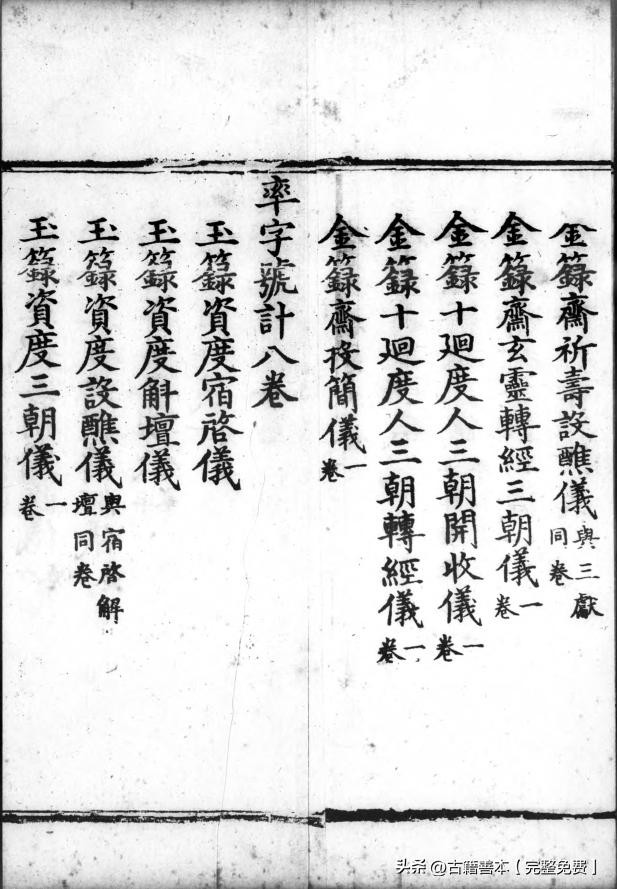 金籙齋祈壽設醮儀與三獻同卷
金籙齋玄靈轉經三朝儀一卷
金籙十迴度人三朝開收儀一卷
金籙十迴度人三朝轉經儀一卷
金籙齋投簡儀一卷
率字號計八卷
玉籙資度宿啓儀
玉籙資度斛壇儀
玉籙資度設醮儀與宿啓解壇同卷
玉籙資度三朝儀一卷
头条 @古籍善本【完整免费】